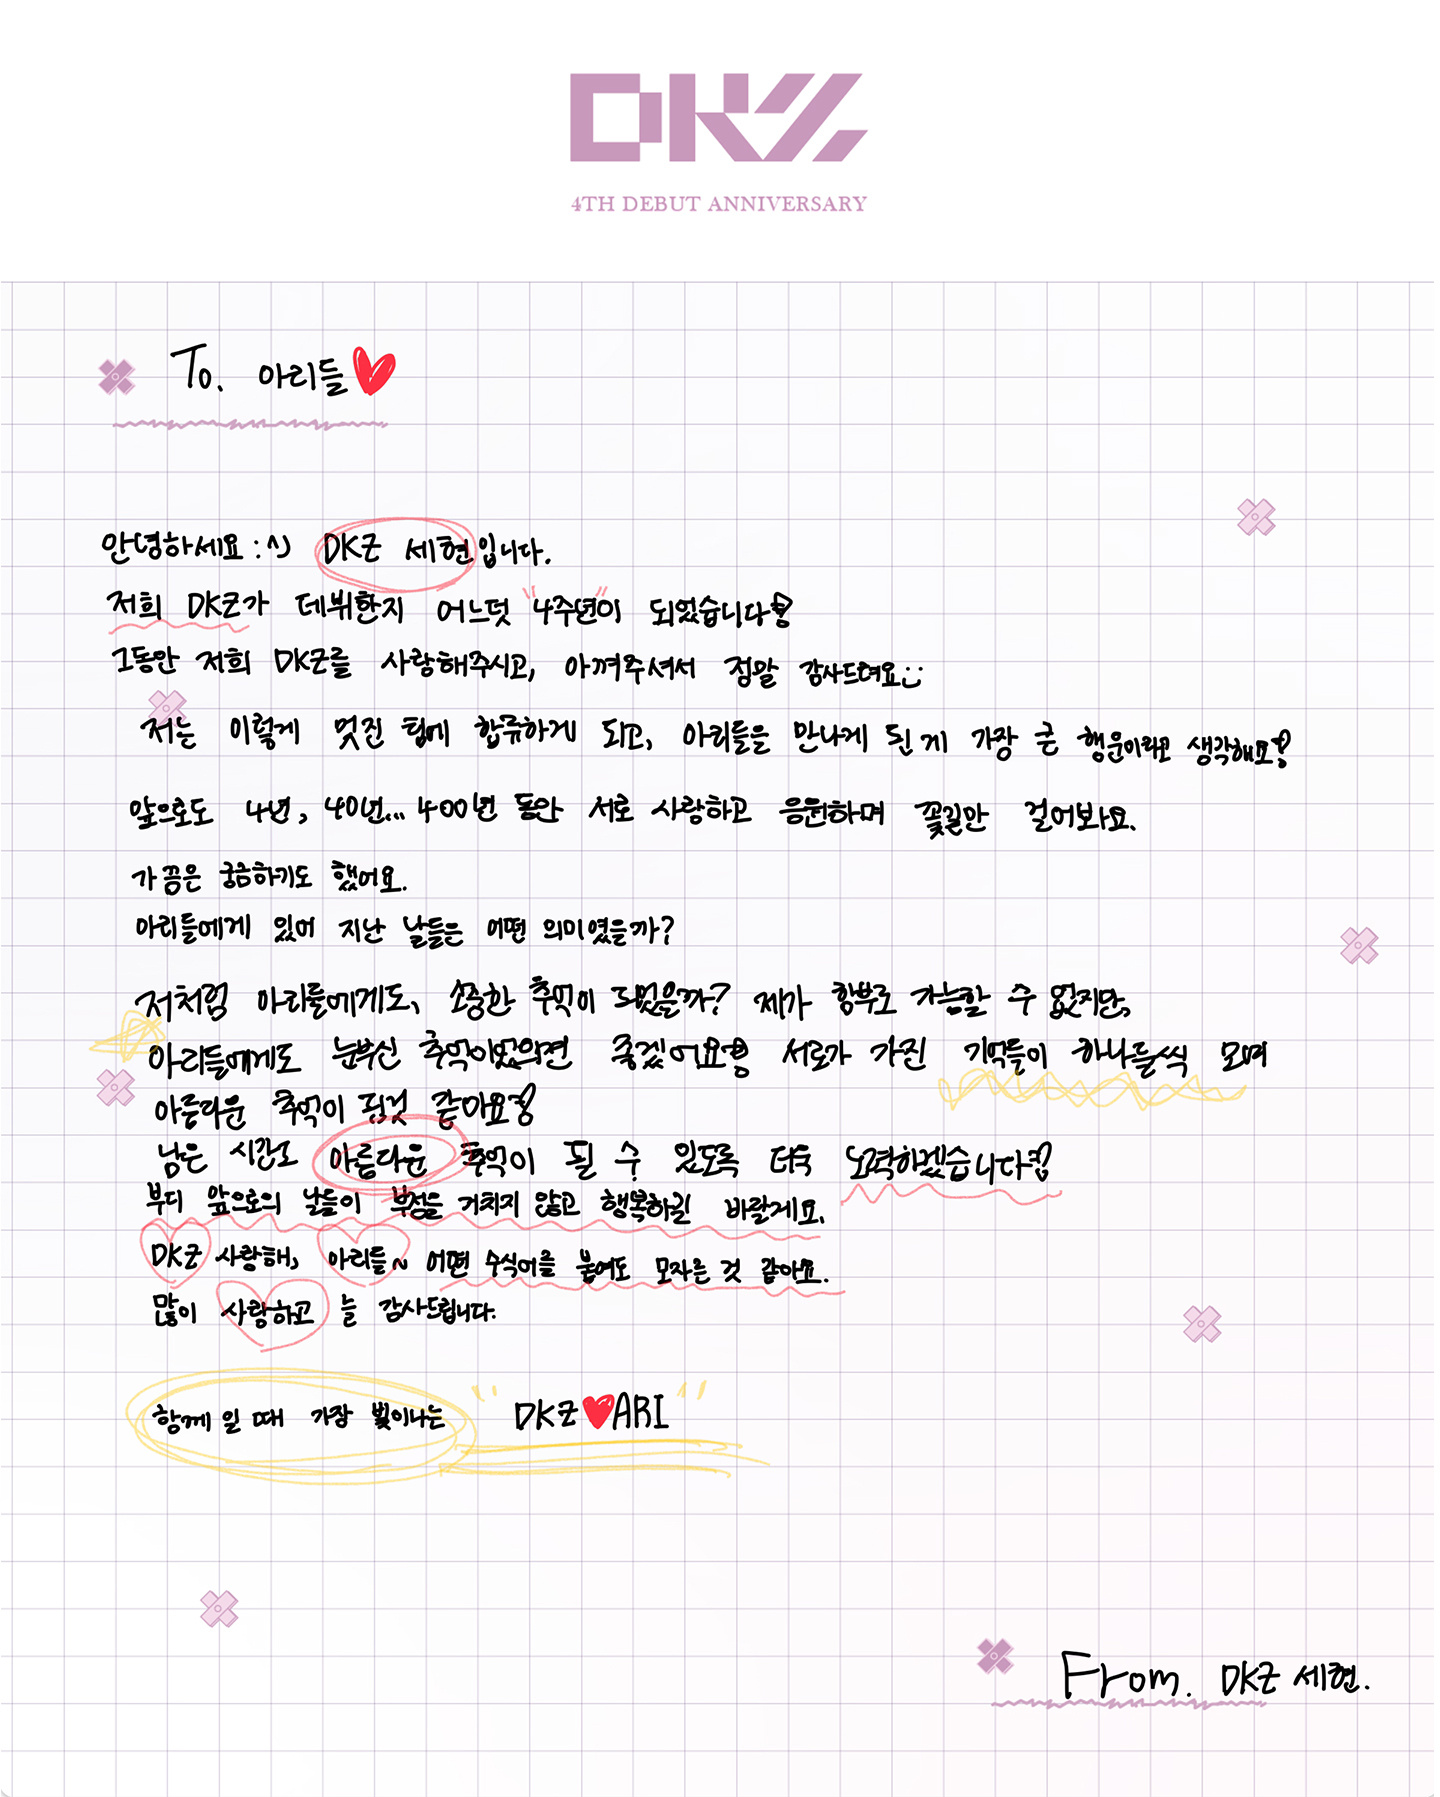 DKZ
4TH DEBUT ANNIVERSARY
To. 아리들♥
안녕하세요 :^) DKZ 세현입니다.
저희 DKZ가 데뷔한지 어느덧 "4주년"이 되었습니다!
그동안 저희 DKZ를 사랑해주시고, 아껴주셔서 정말 감사드려요
저는 이렇게 멋진 팀에 합류하게 되고, 아리들을 만나게 된 게 가장 큰 행운이라고 생각해요!
앞으로도 4년, 40년... 400년 동안 서로 사랑하고 응원하며 꽃길만 걸어봐요.
가끔은 궁금하기도 했어요.
아리들에게 있어 지난 날들은 어떤 의미였을까?
저처럼 아리들에게도, 소중한 추억이 되었을까? 제가 함부로 가늠할 수 없지만,
아리들에게도 눈부신 추억이었으면 좋겠어요!! 서로가 가진 기억들이 하나둘씩 모여
아름다운 추억이 된것 같아요!
남은 시간도 아름다운 추억이 될 수 있도록 더욱 노력하겠습니다!!
부디 앞으로의 날들이 부정을 거치지 않고 행복하길 바랄게요.
DKZ 사랑해, 아리들~ 어떤 수식어를 붙여도 모자른 것 같아요.
많이 사랑하고 늘 감사드립니다.
함께 일 때 가장 빛이나는 "DKZ♥ARI"
From. DKZ 세현.